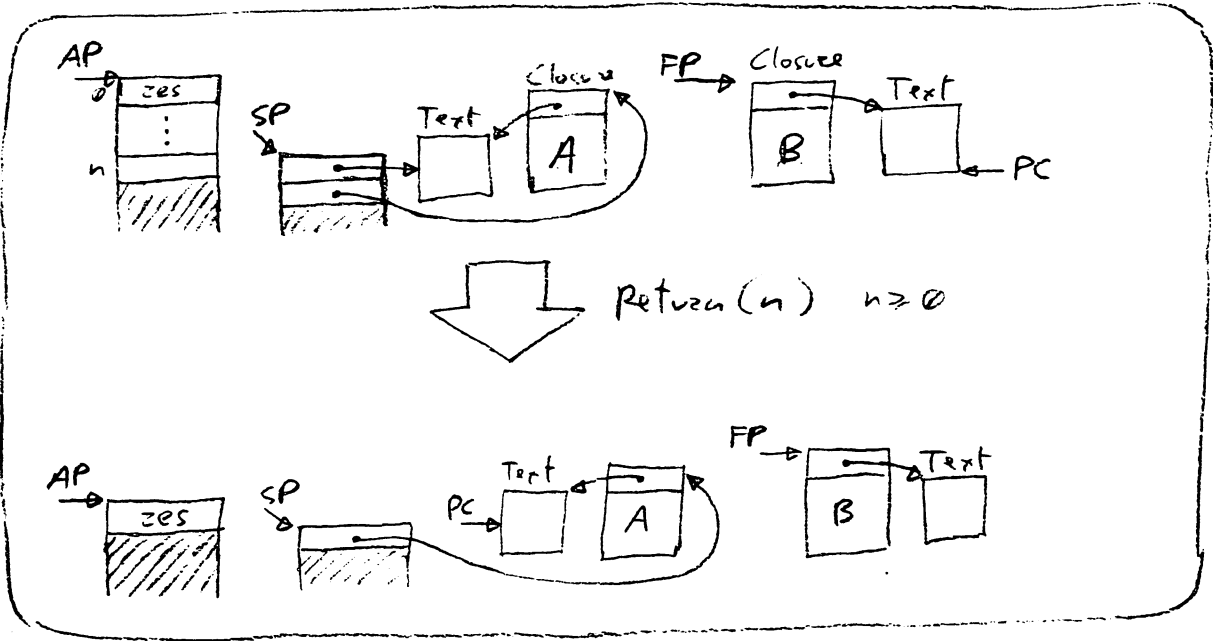 AP
0 res
⋮
n
SP
Text
Closure
A
FP
Closure
B
Text
PC
Return(n) n≥0
AP
res
SP
PC
Text
A
FP
B
Text